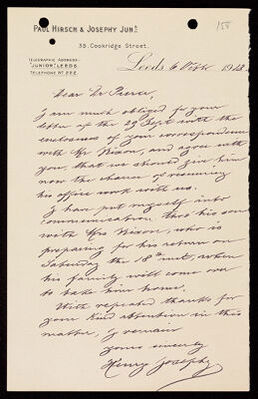 PAUL HIRSCH & JOSEPHY JUNR
35 Cookridge Street.
TELEGRAPHIC ADDRESS-
"JUNIOR" LEEDS.
TELEPHONE No 222.
Leeds 6 Octbr 1913.
Dear Dr Pierce,
I am much obliged for your
letter of the 29 Sept with the
enclosures of your correspondence
with Mr Nixon, and agree with
you, that we should give him
now the chance of resuming
his office work with us.
I have put myself into
communication thro his son
with Mrs Nixon, who is
preparing for his return on
Saturday the 18th inst, when
his family will come over
to take him home.
With repeated thanks for
your kind attention in this
matter, I remain
yours sincerely
Henry Josephy